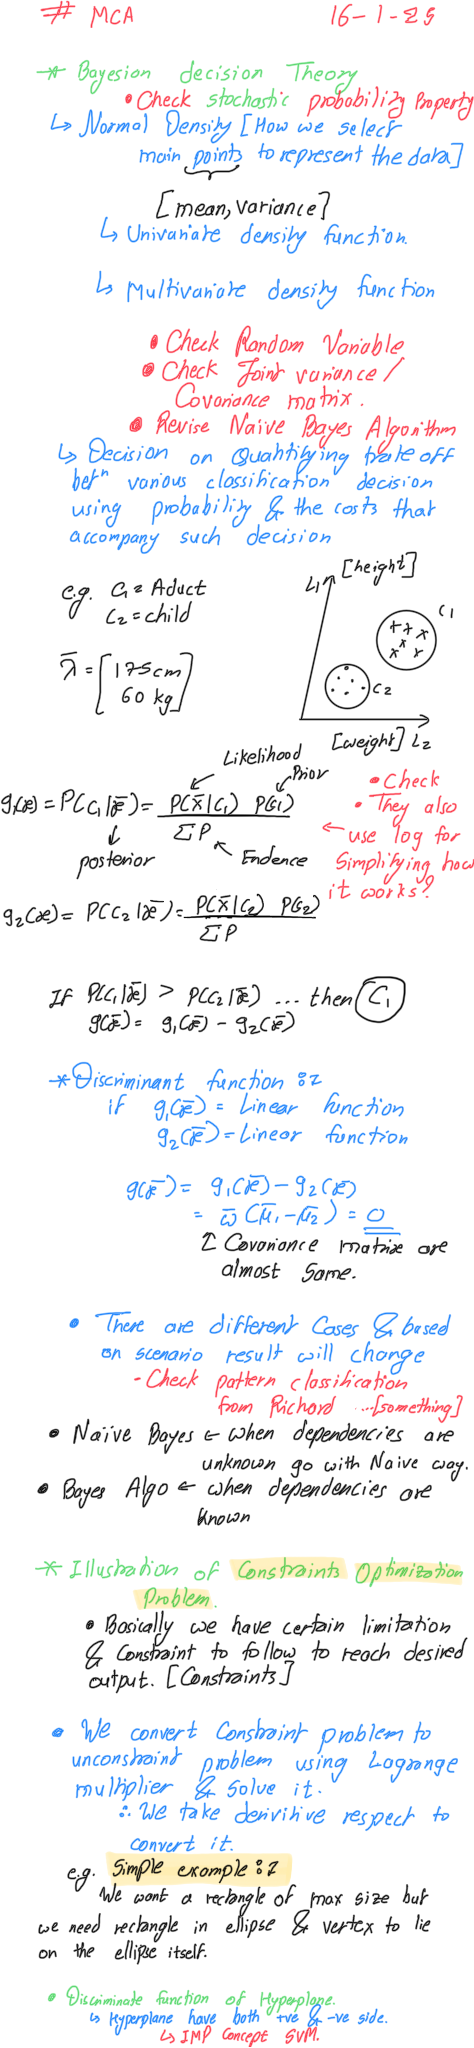 # MCA 16-1-25
* Bayesion decision Theory
• Check stochastic probobility Property
↳ Normal Density [How we select
main points to represent the data]
[mean, variance]
↳ Univariate density function.
↳ Multivariate density function
• Check Random Variable
• Check Joint variance /
Covariance matrix.
• Revise Naive Bayes Algorithm
↳ Decision on Quantifying trateoff
betⁿ various classification decision
using probability & the costs that
accompany such decision
e.g. C1 = Aduct
C2 = child
x̄ = [175cm
60 kg]
L1 [height]
C1
C2
[weight] L2
Likelihood
Prior
g1(x) = P(C1|x̄) = P(x̄|C1) P(C1)
ΣP
posterior
Endence
• Check
• They also
use log for
simplifying how
it works?
g2(x) = P(C2|x̄) = P(x̄|C2) P(C2)
ΣP
If P(C1|x̄) > P(C2|x̄) ... then C1
g(x̄) = g1(x̄) - g2(x̄)
* Discriminant function :-
if g1(x̄) = Linear function
g2(x̄) = Linear function
g(x̄) = g1(x̄) - g2(x)
= w̄ (μ̄1 - μ̄2) = 0
↑ Covariance matrix are
almost same.
• There are different Cases & based
on scenario result will change
- Check pattern classification
from Richard ...[something]
• Naïve Bayes ← when dependencies are
unknown go with Naive way.
• Bayes Algo ← when dependencies are
known
* Illustration of Constraints Optimization
Problem.
• Basically we have certain limitation
& Constraint to follow to reach desired
output. [Constraints]
• We convert Constraint problem to
unconstraint problem using Lagrange
multiplier & solve it.
∴ We take derivitive respect to
convert it.
e.g. Simple example :-
We want a rectangle of max size but
we need rectangle in ellipse & vertex to lie
on the ellipse itself.
• Discriminate function of Hyperplane.
↳ Hyperplane have both +ve & -ve side.
↳ IMP Concept SVM.